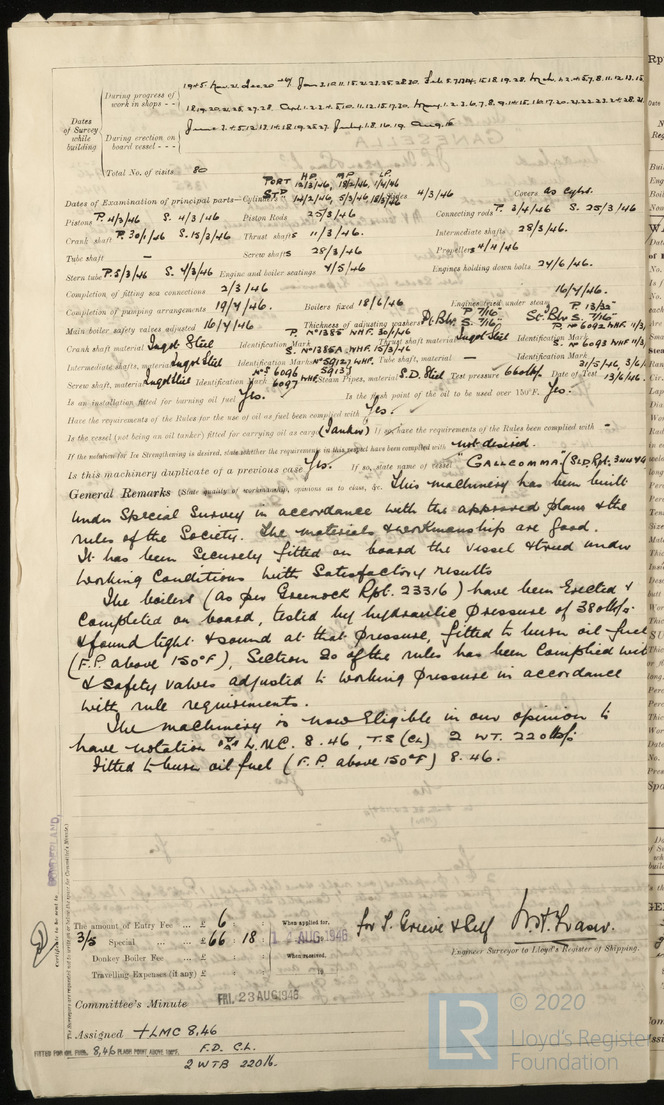 Dates of Survey while building
During progress of work in shops - -
1945 Nov. 21 Dec. 20
During erection on board vessel - - -
Total No. of visits 80
PORT HP 12/3/46, MP 18/2/46, LP 1/4/46
Dates of Examination of principal parts—Cylinders STD 14/2/46, 5/3/46, 18/3/46 Slides 4/3/46 Covers as cyls.
Pistons P. 4/3/46 S. 4/3/46 Piston Rods 25/3/46 Connecting rods P. 3/4/46 S. 25/3/46
Crank shaft P. 30/1/46 S. 15/3/46 Thrust shafts 11/3/46. Intermediate shafts 28/3/46.
Tube shaft — Screw shafts 28/3/46 Propellers 4/4/46
Stern tube P. 5/3/46 S. 4/3/46 Engine and boiler seatings 4/5/46 Engines holding down bolts 24/6/46.
Completion of fitting sea connections 2/3/46
Completion of pumping arrangements 19/7/46. Boilers fixed 18/6/46 Engines tried under steam 16/7/46.
Main boiler safety valves adjusted 16/7/46 Thickness of adjusting washers Pt. Blr. P 7/16" S. 7/16" St. Blr. P. 13/32" S. 7/16"
Crank shaft material Ingot Steel Identification Mark P. No 1385 WHF. 30/1/46 S. No 1385A WHF. 15/3/46 Thrust shaft material Ingot Steel Identification Mark P. No 6092 WHF. 11/3/ S. No 6093 WHF 11/3/
Intermediate shafts, material Ingot Steel Identification Marks No S9121 WHF. S9137 Tube shaft, material — Identification Mark
Screw shaft, material Ingot Steel Identification Mark Nos 6096 6097 WHF Steam Pipes, material S.D. Steel Test pressure 660 lbs/. Date of Test 31/5/46, 3/6/ 13/6/46.
Is an installation fitted for burning oil fuel Yes. Is the flash point of the oil to be used over 150°F. Yes.
Have the requirements of the Rules for the use of oil as fuel been complied with Yes.
Is the vessel (not being an oil tanker) fitted for carrying oil as cargo (Tanker) If so, have the requirements of the Rules been complied with -
If the notation for Ice Strengthening is desired, state whether the requirements in this respect have been complied with not desired.
Is this machinery duplicate of a previous case Yes. If so, state name of vessel "GALLCOMMA" (SLD. Rpt. 34446
General Remarks (State quality of workmanship, opinions as to class, &c. This machinery has been built
under Special Survey in accordance with the approved plans & the
rules of the Society. The materials & workmanship are good.
It has been securely fitted on board the vessel & tried under
working conditions with satisfactory results
The boilers (as per Greenock Rpt. 23316) have been erected &
completed on board, tested by hydraulic pressure of 380 lbs/.
& found tight & sound at that pressure, fitted to burn oil fuel
(F.P. above 150°F), Section 20 of the rules has been complied wit
& safety valves adjusted to working pressure in accordance
with rule requirements.
The machinery is now eligible in our opinion to
have notation L.M.C. 8.46, T.S (CL) 2 W.T. 220 lbs/.
Fitted to burn oil fuel (F.P. above 150°F) 8.46.
SUNDERLAND.
Certificate to be sent to
The Surveyors are requested not to write on or below the space for Committee's Minute.
The amount of Entry Fee ... £ 6 : : When applied for,
3/5 Special ... £ 66 : 18 : 1 AUG. 1946
Donkey Boiler Fee ... £ : : When received,
Travelling Expenses (if any) £ : : 19
for P. Grieve & Self W.H. Fraser.
Engineer Surveyor to Lloyd's Register of Shipping.
Committee's Minute FRI. 23 AUG 1946
Assigned +LMC 8,46
FITTED FOR OIL FUEL 8,46 FLASH POINT ABOVE 150°F.
F.D. C.L.
2 WTB 220 lb.
LR © 2020
Lloyd's Register
Foundation